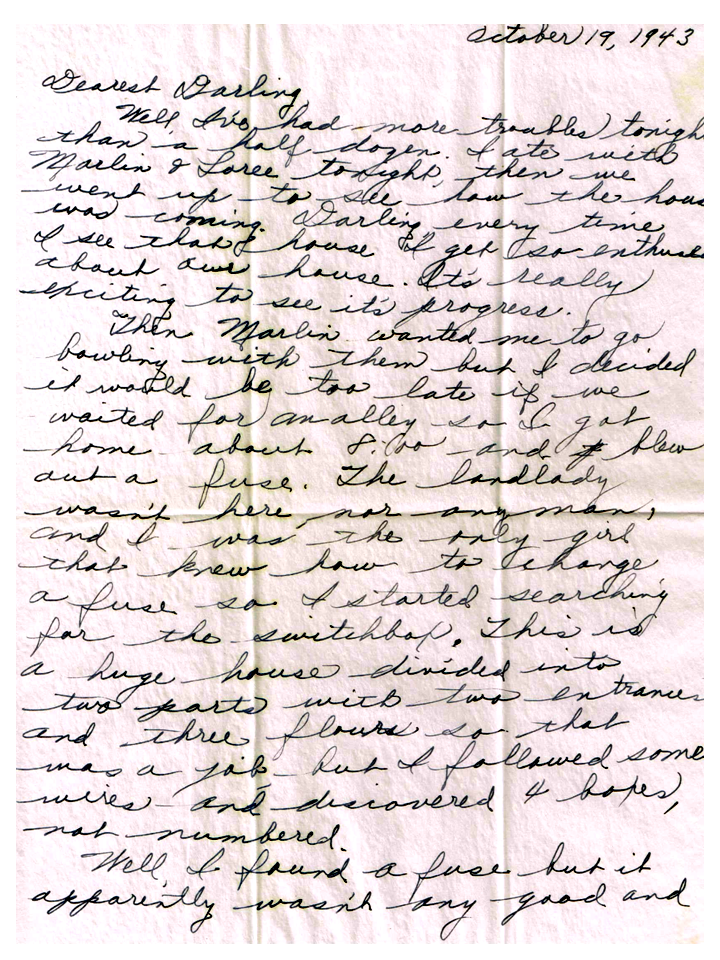 October 19, 1943
Dearest Darling,
Well I've had more troubles tonigh
than a half dozen. I ate with
Marlin & Loree tonight, then we
went up to see how the hous
was coming. Darling every time
I see that house I get so enthuse
about our house. It's really
exciting to see it's progress.
Then Marlin wanted me to go
bowling with them but I decided
it would be too late if we
waited for an alley so I got
home about 8:00 and blew
out a fuse. The landlady
wasn't here, nor any man,
and I was the only girl
that knew how to change
a fuse so I started searching
for the switchbox. This is
a huge house divided into
two parts with two entrances
and three floors so that
was a job - but I followed some
wires - and discovered 4 boxes,
not numbered.
Well, I found a fuse but it
apparently wasn't any good and